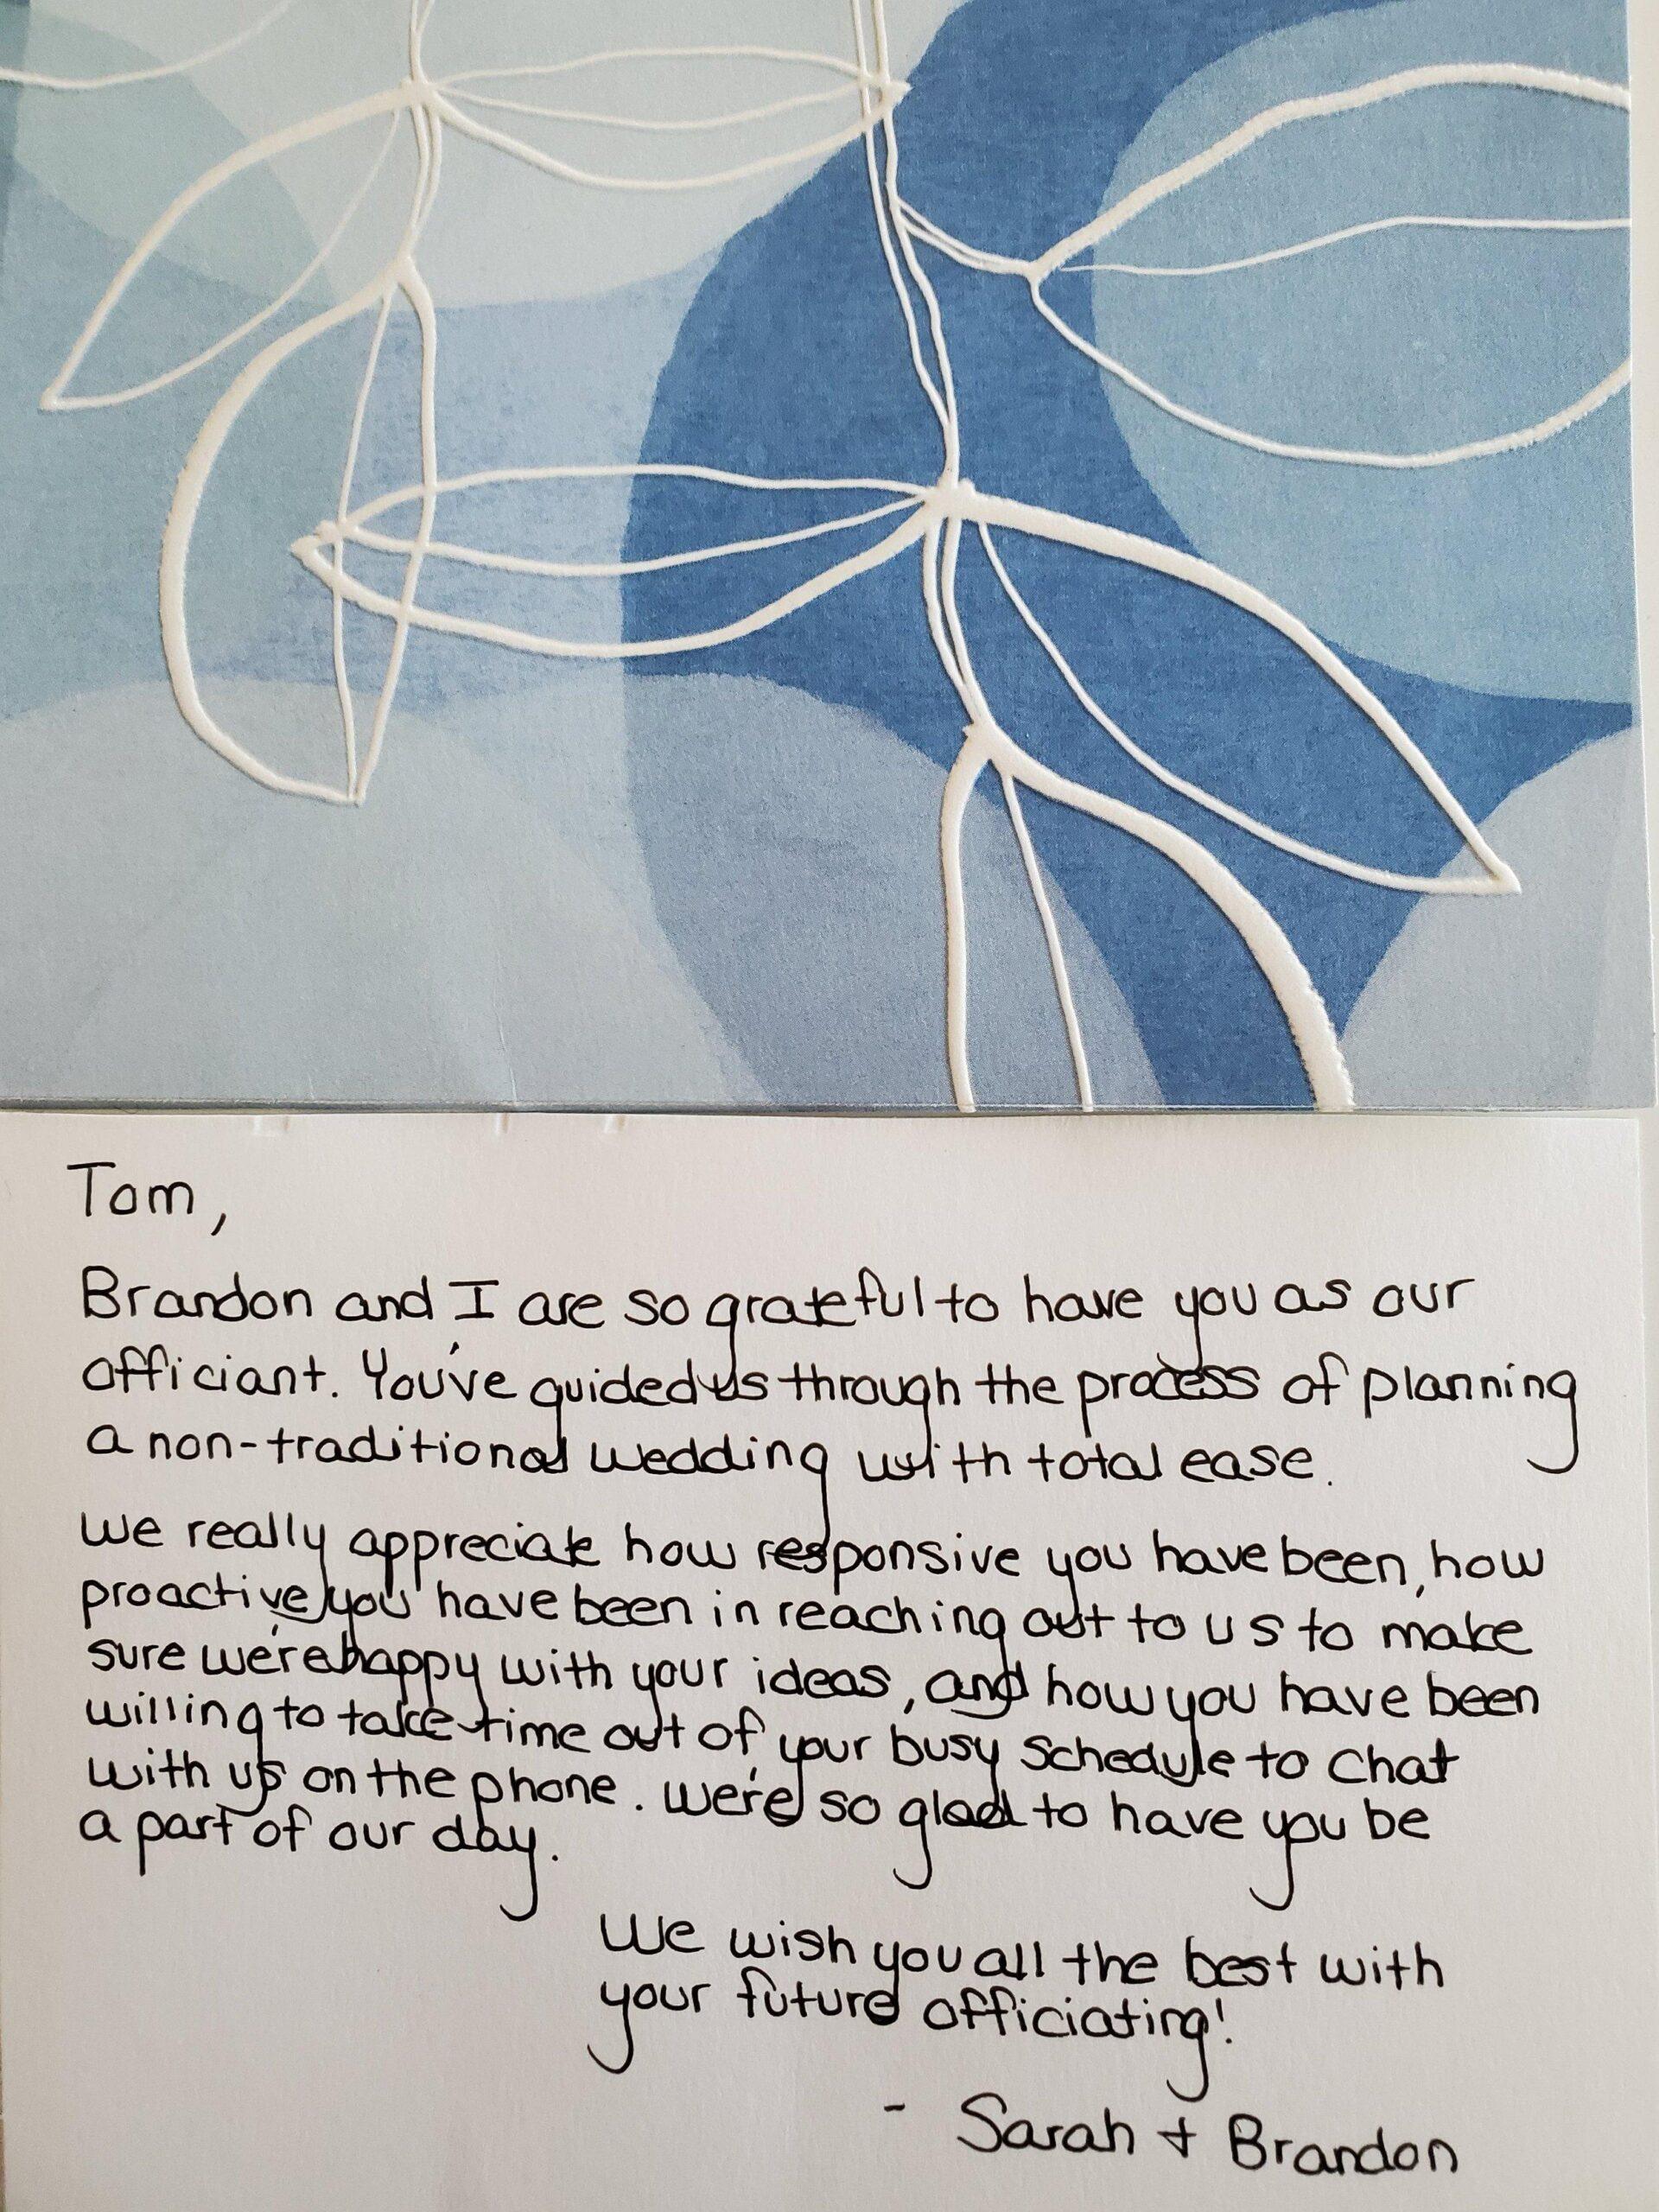 Tom,
Brandon and I are so grateful to have you as our
officiant. You've guided us through the process of planning
a non-traditional wedding with total ease.
We really appreciate how responsive you have been, how
proactive you have been in reaching out to us to make
sure we're happy with your ideas, and how you have been
willing to take time out of your busy schedule to chat
with us on the phone. We're so glad to have you be
a part of our day.
We wish you all the best with
your future officiating!
- Sarah + Brandon